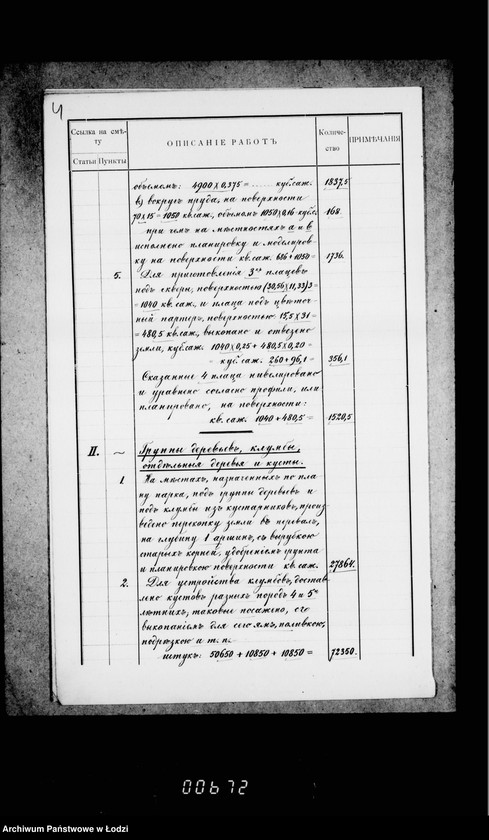 4
Ссылка на смѣ-
ту
Статьи Пункты
ОПИСАНІЕ РАБОТЪ
Количе-
ство
ПРИМѢЧАНІЯ
объемомъ: 4900 x 0,375 = ........ куб. саж. 1837,5
в) вокругъ пруда, на поверхности
70 x 15 = 1050 кв. саж., объемомъ 1050 x 0,16 куб. с. 168.
при чемъ на мѣстностяхъ а и в
исполнено планировку и моделиров-
ку на поверхности кв. саж. 686 + 1050 = 1736.
5. Для приготовленія 3хъ плацевъ
подъ скверы, поверхностью (30,56 x 11,33) 3 =
= 1040 кв. саж. и плаца подъ цвѣточ-
ный партеръ, поверхностью 15,5 x 31 =
= 480,5 кв. саж., выкопано и отвезено
земли, куб. саж. 1040 x 0,25 + 480,5 x 0,20 =
= куб. саж. 260 + 96,1 = 356,1
Сказанные 4 плаца нивелировано
и уравнено согласно профили, или
планировано, на поверхности:
кв. саж. 1040 + 480,5 = 1520,5
II. ~ Группы деревьевъ, клумбы,
отдѣльныя деревья и кусты.
1. На мѣстахъ, назначенныхъ по пла-
ну парка, подъ группы деревьевъ и
подъ клумбы изъ кустарниковъ, произ-
ведено перекопку земли въ перевалъ,
на глубину 1 аршинъ, съ вырубкою
старыхъ корней, удобреніемъ грунта
и планировкою поверхности кв. саж. 27864.
2. Для устройства клумбовъ, достав-
лено кустовъ разныхъ породъ 4 и 5ти
лѣтнихъ, таковые посажено, съ
выкопаніемъ для сего ямъ, поливкою,
подрѣзкою и т. п.
штукъ: 50650 + 10850 + 10850 = 72350.
00672
Archiwum Państwowe w Łodzi